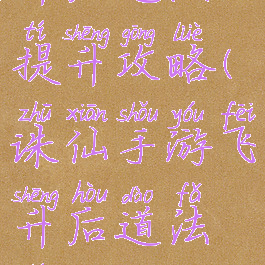 tí shēng gōng lüè
提升攻略(
zhū xiān shǒu yóu fēi
诛仙手游飞
shēng hòu dào fǎ
升后道法